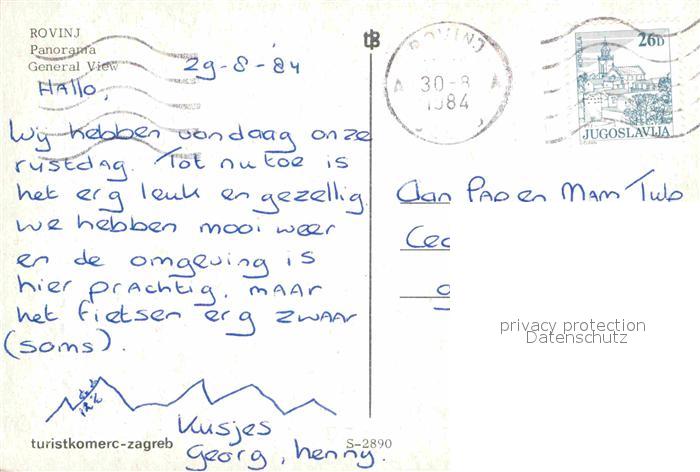 ROVINJ
Panorama
General View
29-8-'84
Hallo,
Wij hebben vandaag onze
rustdag. Tot nu toe is
het erg leuk en gezellig
we hebben mooi weer
en de omgeving is
hier prachtig, maar
het fietsen erg zwaar
(soms).
12%
Kusjes
Georg, Henny.
turistkomerc-zagreb
S-2890
tB
ROVINJ
30-8
1984
26D
JUGOSLAVIJA
Aan Pap en Mam
privacy protection
Datenschutz